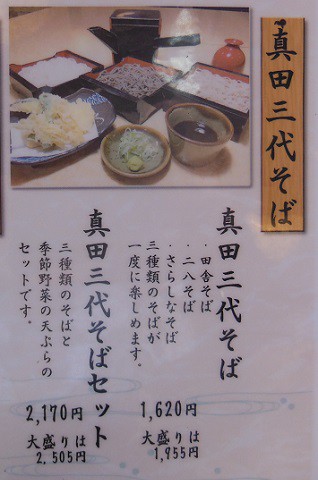 真田三代そば
真田三代そば
・田舎そば
・二八そば
・さらしなそば
三種類のそばが
一度に楽しめます。
1,620円
大盛りは
1,955円
真田三代そばセット
三種類のそばと
季節野菜の天ぷらの
セットです。
2,170円
大盛りは
2,505円